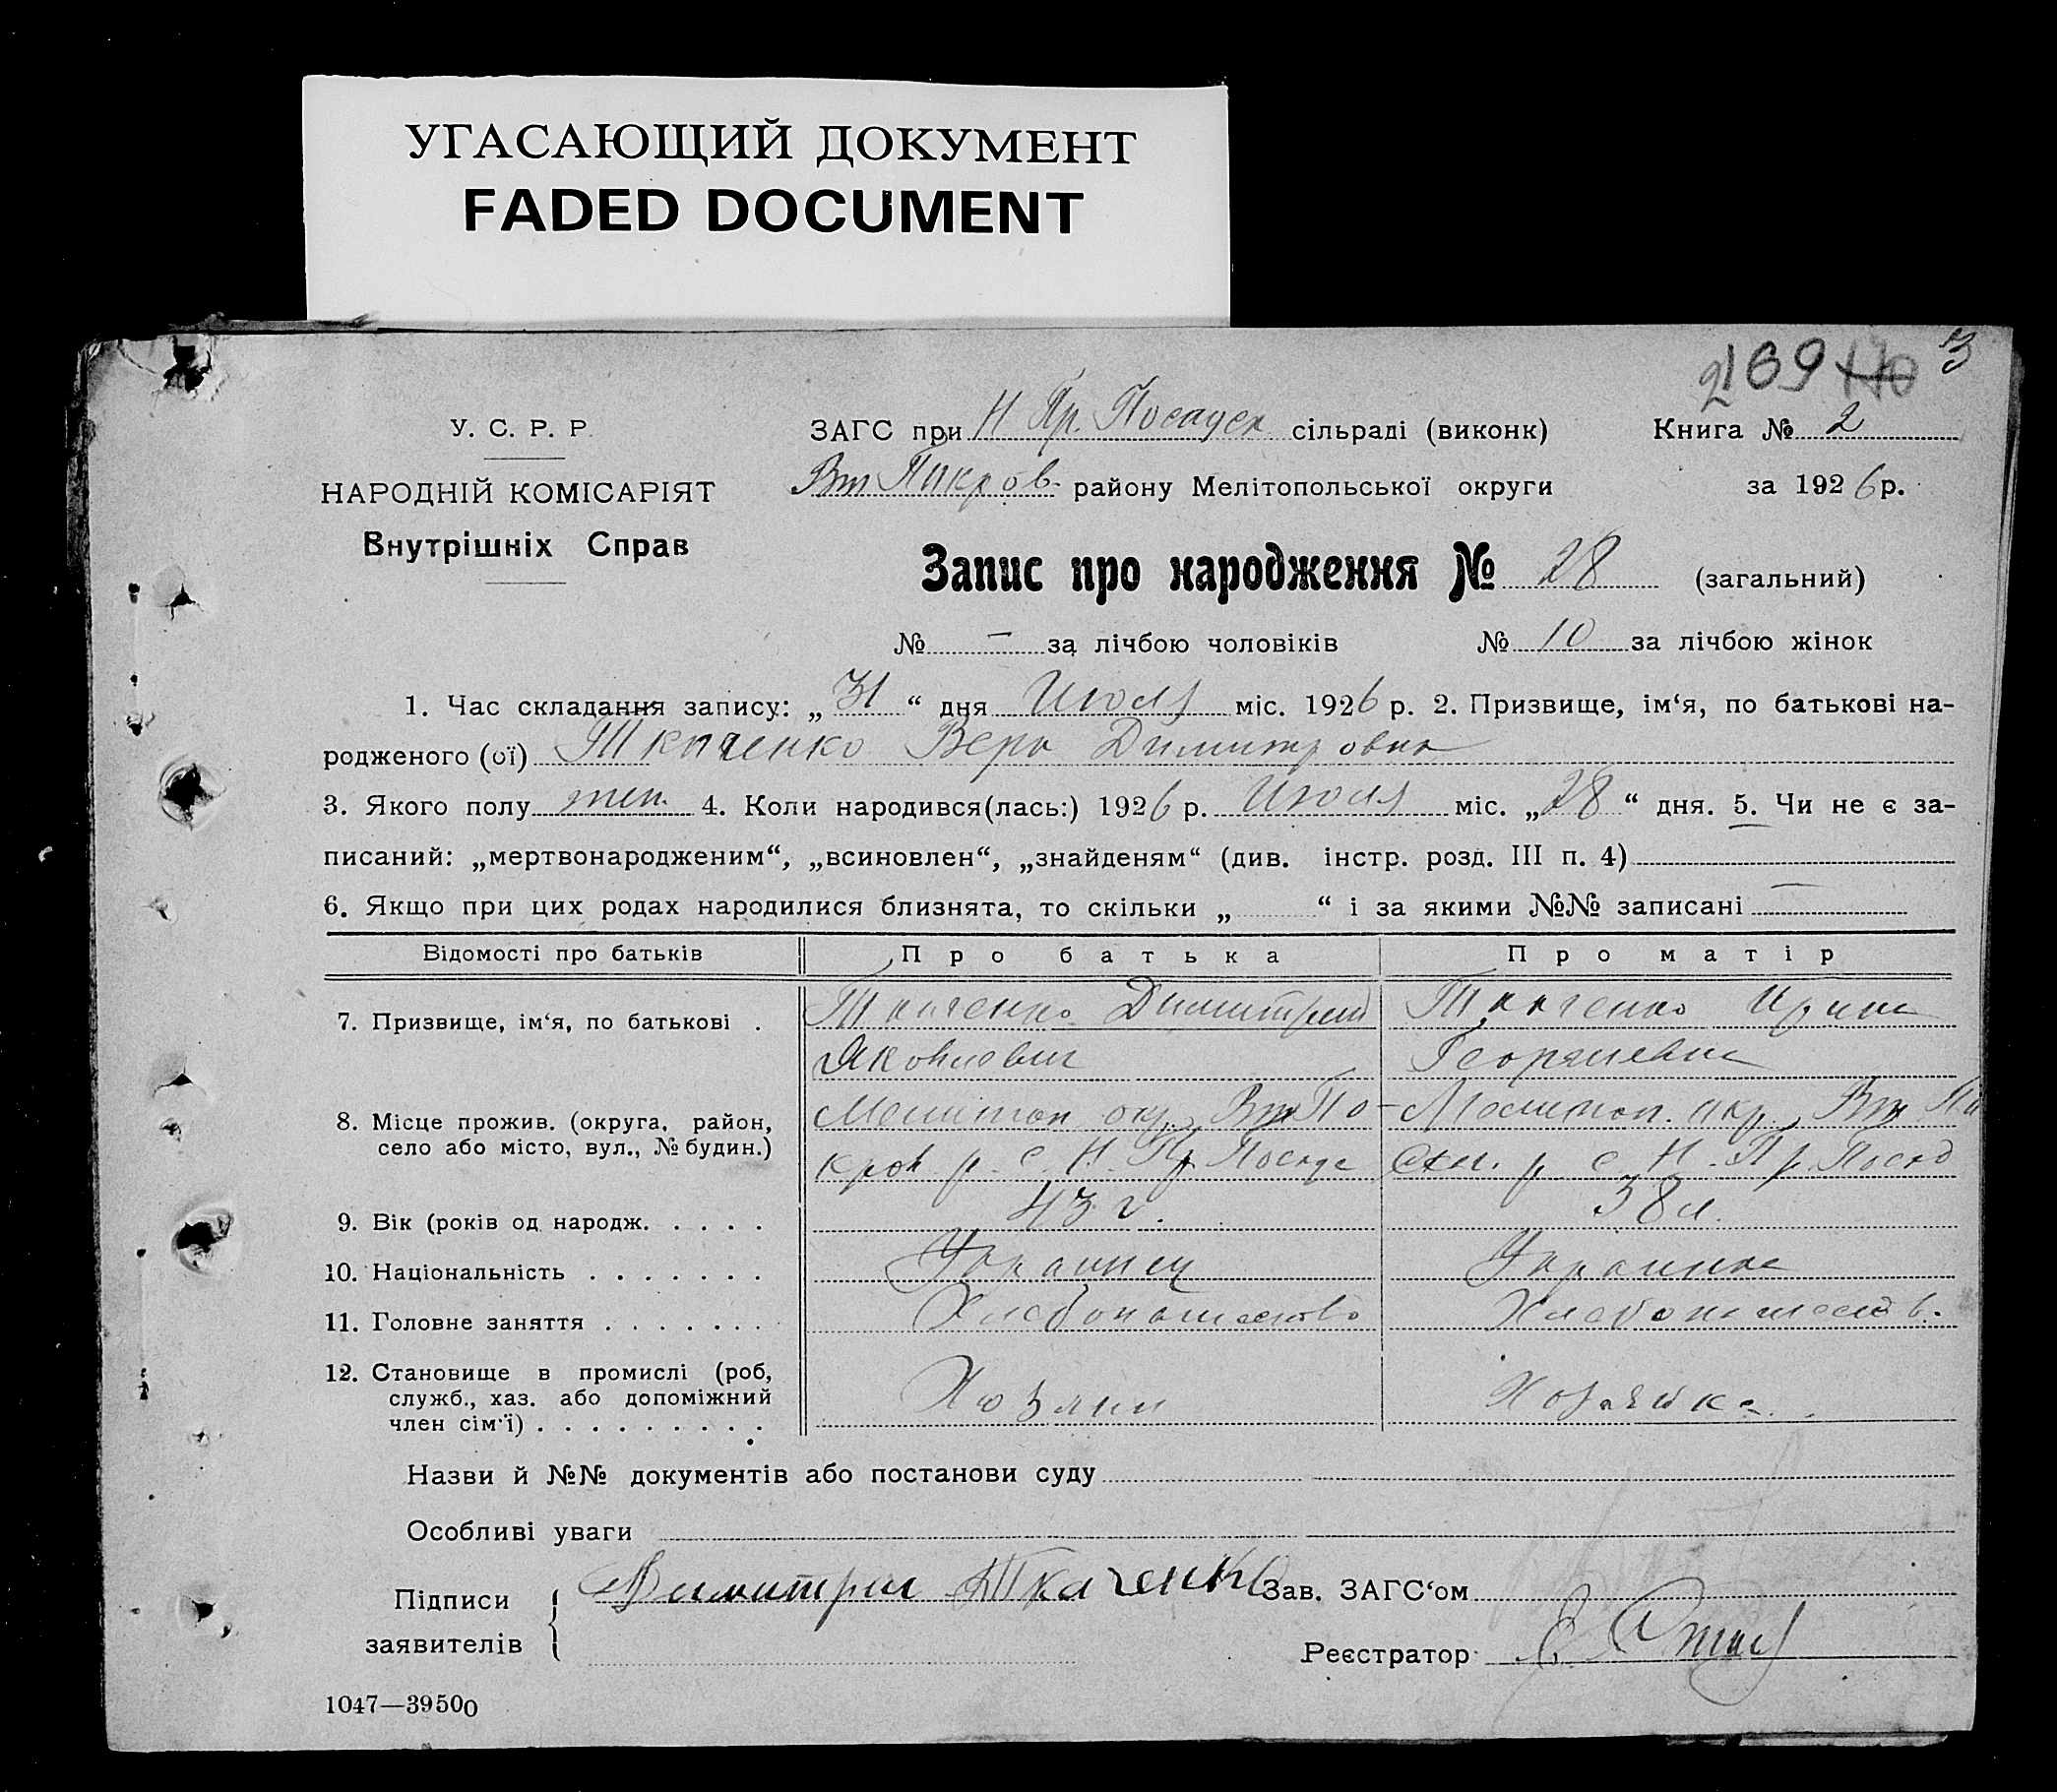 УГАСАЮЩИЙ ДОКУМЕНТ
FADED DOCUMENT
169 3
У. С. Р. Р. ЗАГС при Н Пр. Посадск сільраді (виконк) Книга № 2
НАРОДНІЙ КОМІСАРІЯТ Вт Покров. району Мелітопольської округи за 1926 р.
Внутрішніх Справ
Запис про народження № 28 (загальний)
№ — за лічбою чоловіків № 10 за лічбою жінок
1. Час складання запису: „31“ дня Июля міс. 1926 р. 2. Призвище, ім‘я, по батькові на-
родженого (ої) Ткаченко Вера Димитровна
3. Якого полу жен. 4. Коли народився(лась:) 1926 р. Июля міс. „28“ дня. 5. Чи не є за-
писаний: „мертвонародженим“, „всиновлен“, „знайденям“ (див. інстр. розд. III п. 4)
6. Якщо при цих родах народилися близнята, то скільки „ “ і за якими №№ записані —
Відомості про батьків Про батька Про матір
7. Призвище, ім‘я, по батькові . Ткаченко Димитрий Ткаченко Ирина
Яковлевич Георгиевна
8. Місце прожив. (округа, район, Мелитоп окр., Вт По- Мелитоп. окр., Вт По
село або місто, вул., № будин.) кров р. с. Н. Пр. Посад р с. Н. Пр. Посад
9. Вік (років од народж. . . . . 43 г. 38 л.
10. Національність . . . . . . . Украинец Украинка
11. Головне заняття . . . . . . . Хлебопашество Хлебопашеств.
12. Становище в промислі (роб,
служб., хаз. або допоміжний Хозяин Хозяйка
член сім‘ї) . . . . . . . . .
Назви й №№ документів або постанови суду
Особливі уваги
Підписи Димитрий Ткаченко Зав. ЗАГС‘ом
заявителів Реєстратор
1047—39500